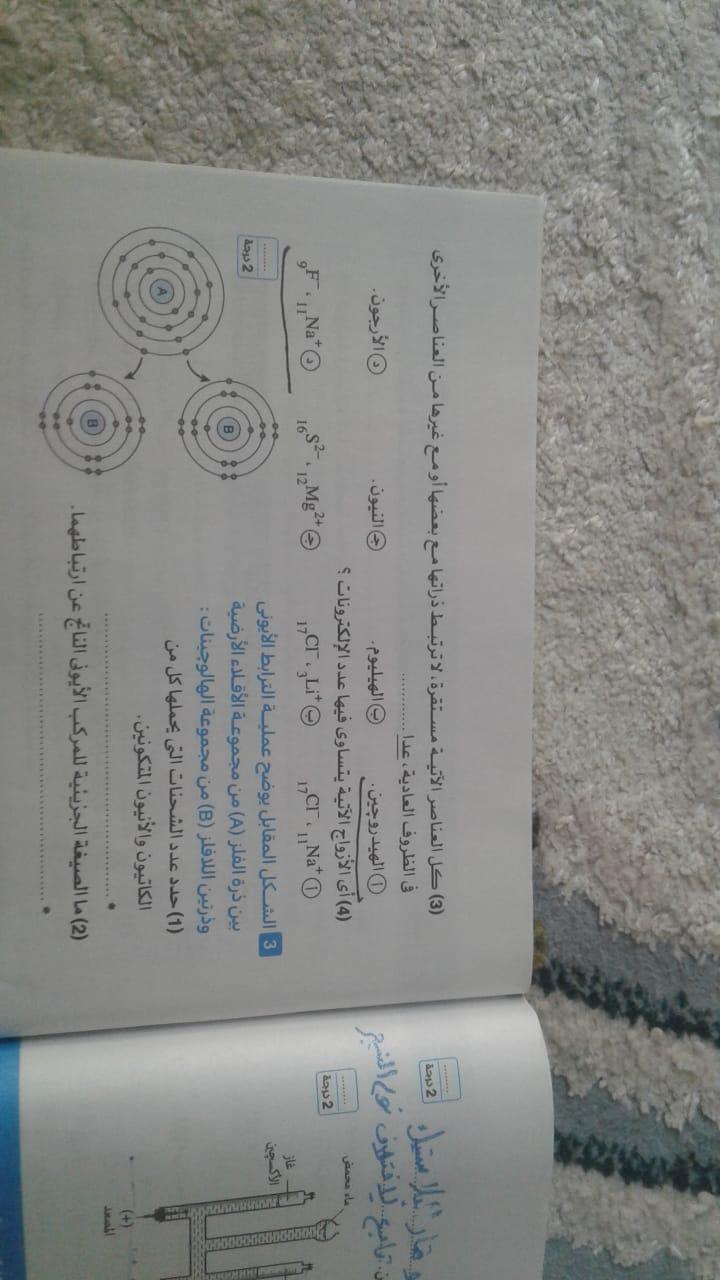 (3) كل العناصر الآتية مستقرة، لا ترتبط ذراتها مع بعضها أو مع غيرها من العناصر الأخرى
فى الظروف العادية، عدا ............
أ الهيدروجين. ب الهيليوم. ج النيون. د الأرجون.
(4) أى الأزواج الآتية يتساوى فيها عدد الإلكترونات ؟
أ ₁₇Cl⁻ ، ₁₁Na⁺ ب ₁₇Cl⁻ ، ₃Li⁺ ج ₁₆S²⁻ ، ₁₂Mg²⁺ د ₉F⁻ ، ₁₁Na⁺
3 الشكل المقابل يوضح عملية الترابط الأيونى
بين ذرة الفلز (A) من مجموعة الأقلاء الأرضية
وذرتين اللافلز (B) من مجموعة الهالوجينات :
........ 2 درجة
(1) حدد عدد الشحنات التى يحملها كل من
الكاتيون والأنيون المتكونين.
(2) ما الصيغة الجزيئية للمركب الأيونى الناتج عن ارتباطهما.
A
B
B
........ 2 درجة
........ 2 درجة
ماء محمض
غاز
الأكسچين
(+)
المصعد